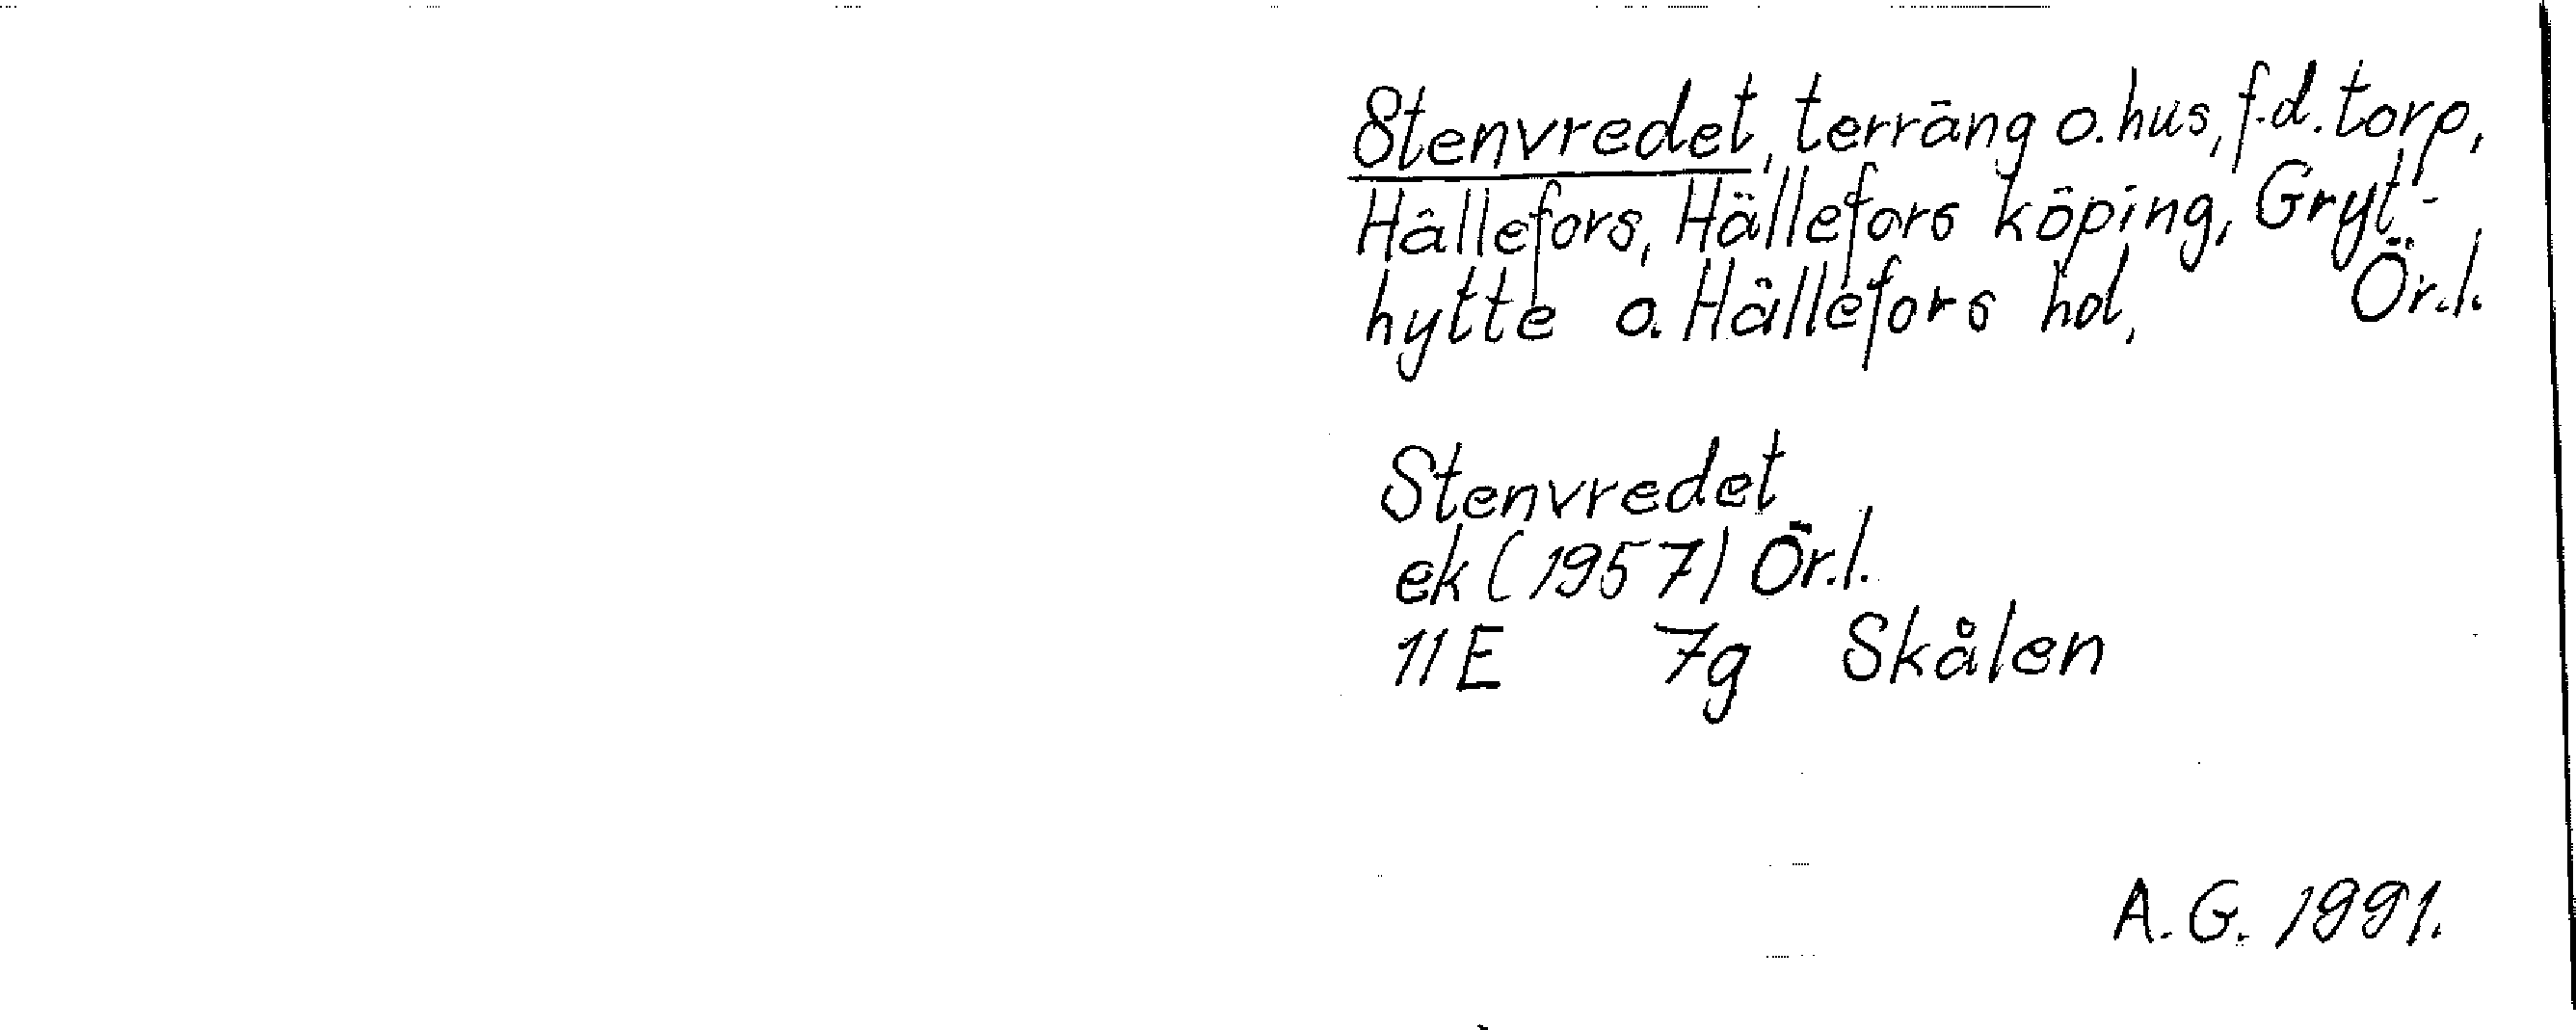 Stenvredet, terräng o. hus, f.d. torp,
Hällefors, Hällefors köping, Gryt-
hytte o. Hällefors hd, Ör.l.
Stenvredet
ek (1957) Ör.l.
11E 7g Skålen
A.G. 1991.